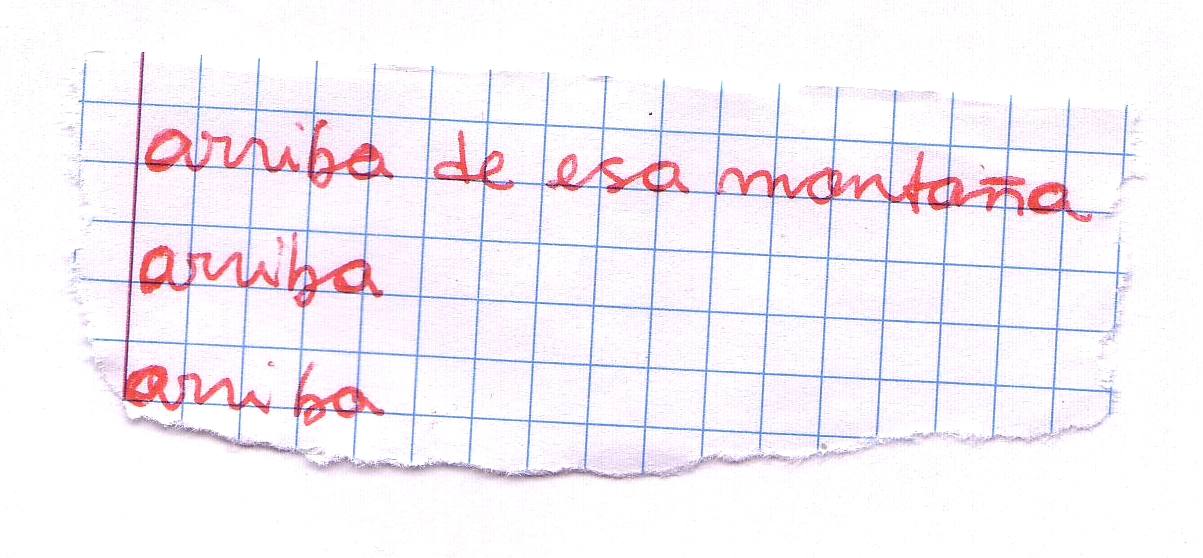 arriba de esa montaña
arriba
arriba